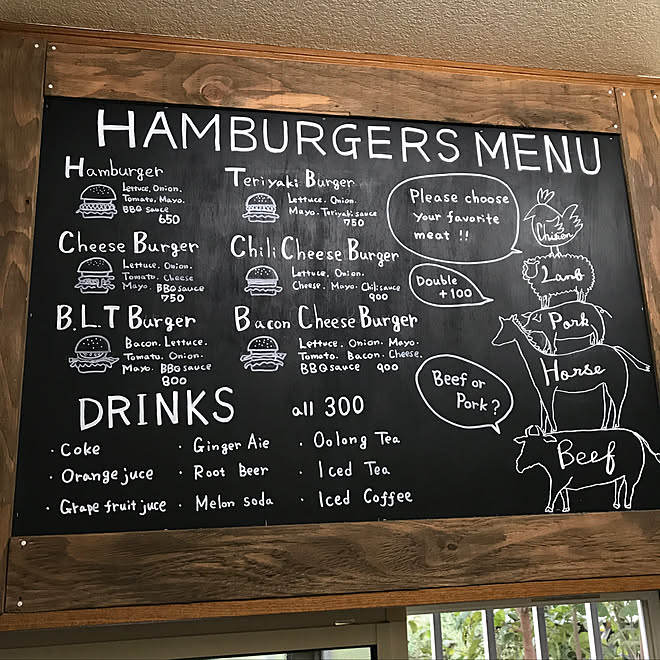 HAMBURGERS MENU
Hamburger
Lettuce. Onion.
Tomato. Mayo.
BBQ sauce
650
Teriyaki Burger
Lettuce. Onion.
Mayo. Teriyaki sauce
750
Cheese Burger
Lettuce. Onion.
Tomato. Cheese
Mayo. BBQ sauce
750
Chili Cheese Burger
Lettuce. Onion.
Cheese. Mayo. Chili sauce
900
B.L.T Burger
Bacon. Lettuce.
Tomato. Onion.
Mayo. BBQ sauce
800
Bacon Cheese Burger
Lettuce. Onion. Mayo.
Tomato. Bacon. Cheese.
BBQ sauce 900
Please choose
your favorite
meat !!
Double
+100
Beef or
Pork?
Chicken
Lamb
Pork
Horse
Beef
DRINKS all 300
・Coke
・Orange juce
・Grape fruit juce
・Ginger Ale
・Root Beer
・Melon soda
・Oolong Tea
・Iced Tea
・Iced Coffee